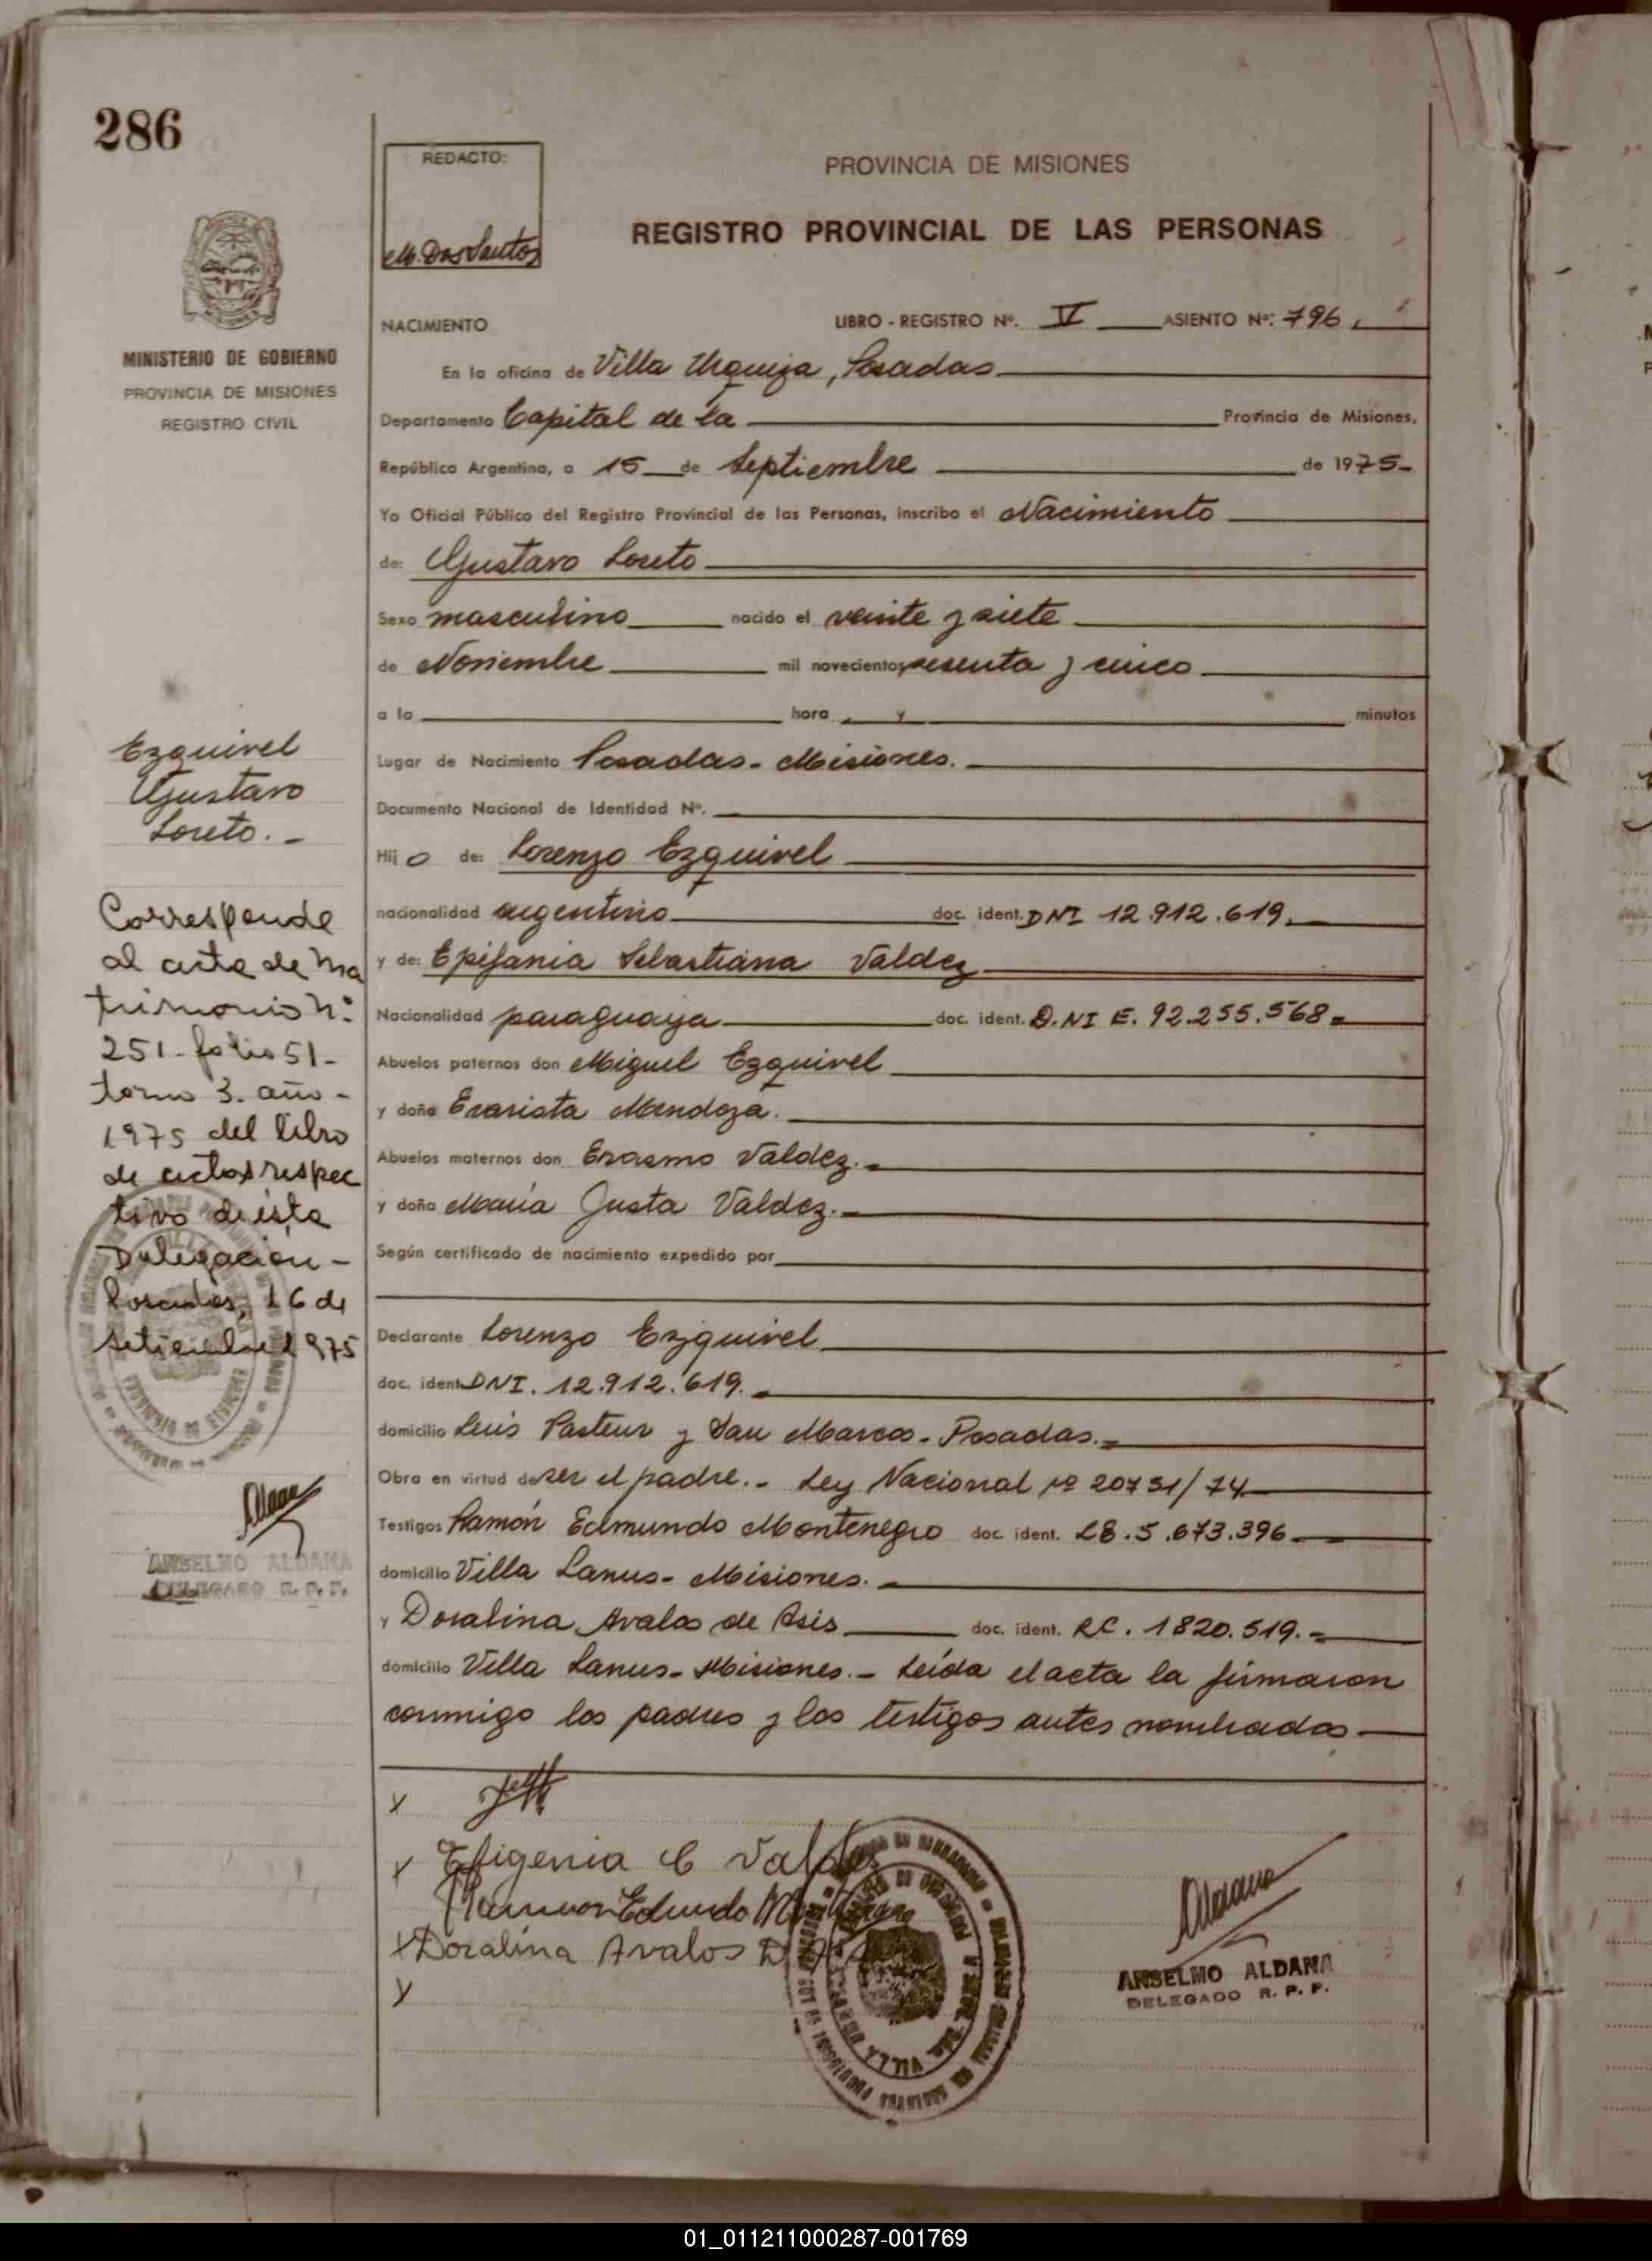 286
REDACTO:
M. Dos Santos
PROVINCIA DE MISIONES
REGISTRO PROVINCIAL DE LAS PERSONAS
MINISTERIO DE GOBIERNO
PROVINCIA DE MISIONES
REGISTRO CIVIL
NACIMIENTO LIBRO - REGISTRO Nº. V ASIENTO Nº: 796
En la oficina de Villa Urquiza, Posadas
Departamento Capital de la Provincia de Misiones,
República Argentina, a 15 de Septiembre de 1975-
Yo Oficial Público del Registro Provincial de las Personas, inscribo el Nacimiento
de: Gustavo Loreto
Sexo masculino nacido el veinte y siete
de Noviembre mil novecientos sesenta y cinco
a la hora y minutos
Lugar de Nacimiento Posadas - Misiones.
Documento Nacional de Identidad Nº.
Hijo de: Lorenzo Ezquivel
nacionalidad argentino doc. ident. DNI 12.912.619.
y de: Epifania Sebastiana Valdez
Nacionalidad paraguaya doc. ident. D.NI E. 92.255.568=
Abuelos paternos don Miguel Ezquivel
y doña Evarista Mendoza.
Abuelos maternos don Erasmo Valdez.-
y doña María Justa Valdez.-
Según certificado de nacimiento expedido por
Declarante Lorenzo Ezquivel
doc. ident. DNI. 12.912.619.
domicilio Luis Pasteur y San Marcos - Posadas.=
Obra en virtud de ser el padre.- Ley Nacional nº 20751/74
Testigos Ramón Edmundo Montenegro doc. ident. LE.5.673.396
domicilio Villa Lanus - Misiones.
y Doralina Avalos de Asis doc. ident. RC. 1820.519.=
domicilio Villa Lanus - Misiones.- Leída el acta la firmaron
conmigo los padres y los testigos antes nombrados
Ezquivel
Gustavo
Loreto.-
Corresponde
al acta de ma
trimonio nº
251-folio 51-
tomo 3. año-
1975 del libro
de actas respec
tivo de ésta
Delegación-
Posadas, 16 de
setiembre 1975
Aldana
ANSELMO ALDANA
DELEGADO R. P. P.
x
x Efigenia C Valdez
Ramon Edmundo
x Doralina Avalos D
x
Aldana
ANSELMO ALDANA
DELEGADO R. P. P.
01_011211000287-001769